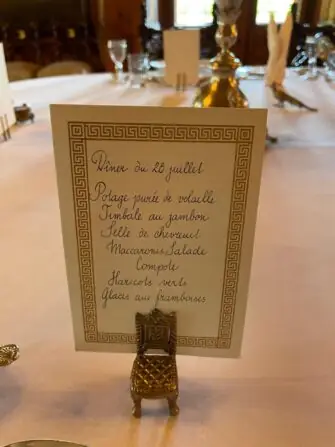 Dîner du 28 juillet
Potage purée de volaille
Timbale au jambon
Selle de chevreuil
Maccaronis Salade
Compote
Haricots verts
Glaces aux framboises